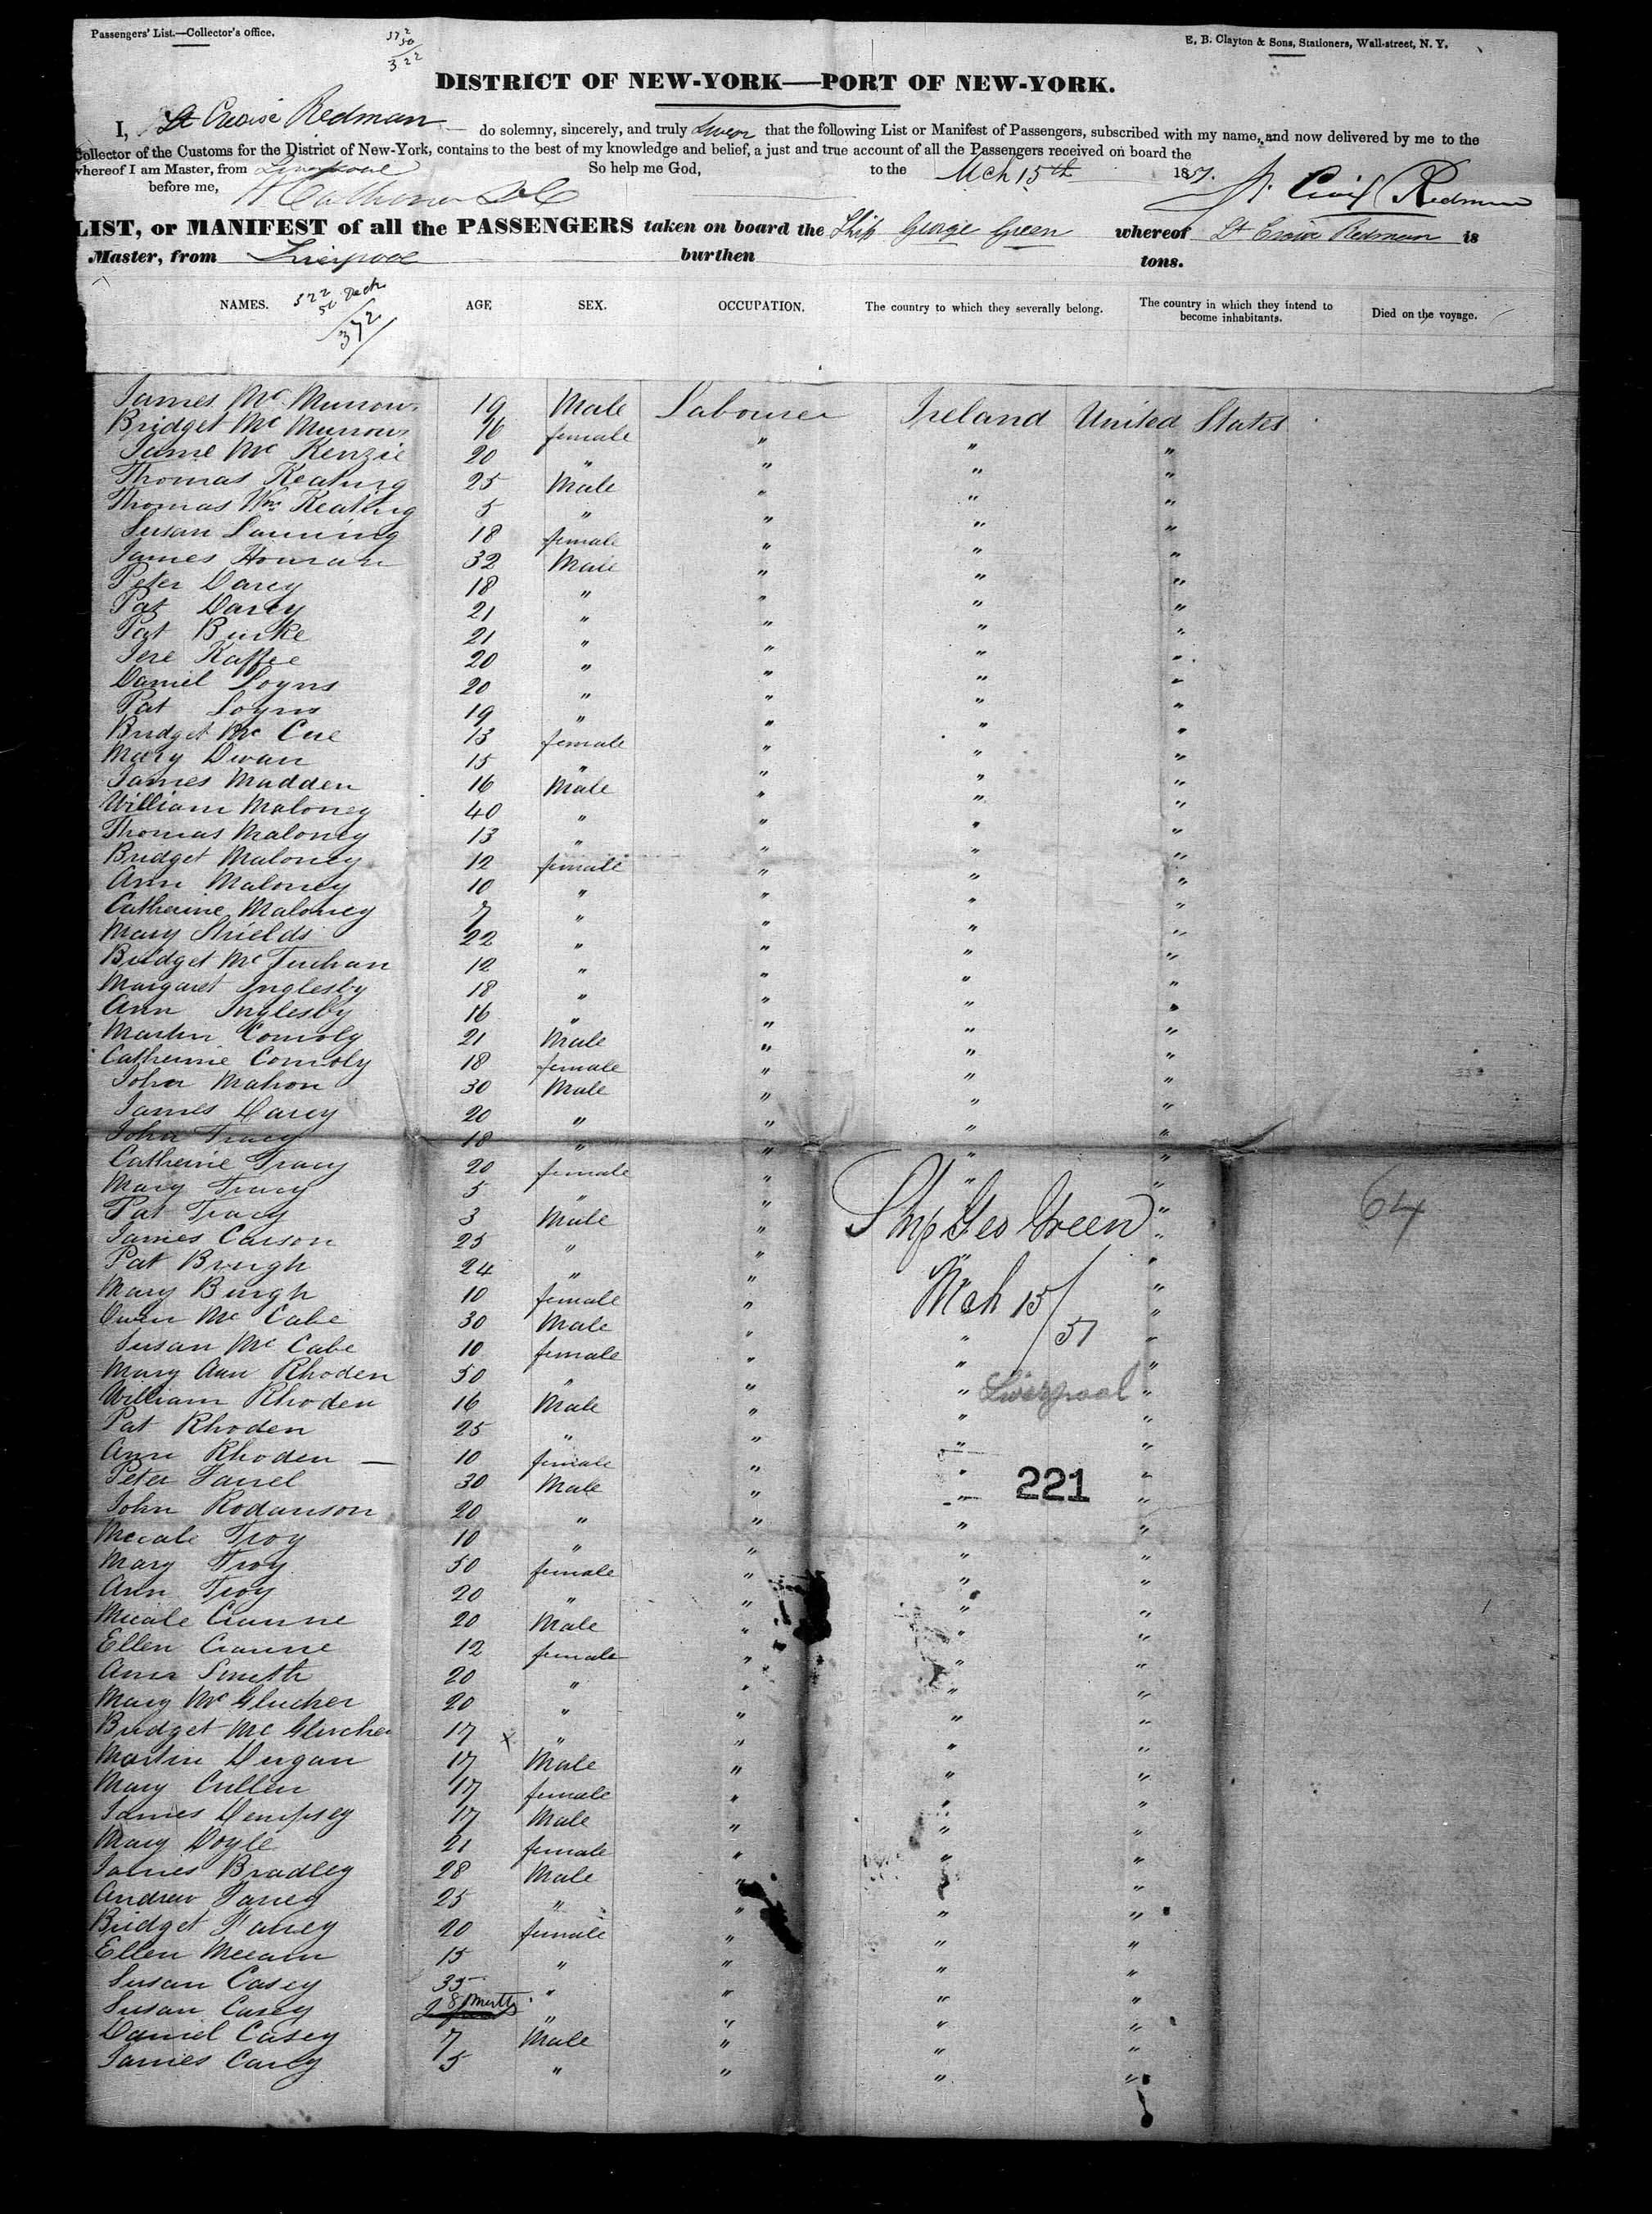 Passengers' List.—Collector's office.
372
50
322
E. B. Clayton & Sons, Stationers, Wall-street, N. Y.
DISTRICT OF NEW-YORK—PORT OF NEW-YORK.
I, St Croix Redman do solemny, sincerely, and truly Swear that the following List or Manifest of Passengers, subscribed with my name, and now delivered by me to the
Collector of the Customs for the District of New-York, contains to the best of my knowledge and belief, a just and true account of all the Passengers received on board the
whereof I am Master, from Liverpool So help me God, to the Mch 15th 1851. St Croix Redman
before me,
LIST, or MANIFEST of all the PASSENGERS taken on board the Ship George Green whereof St Croix Redman is
Master, from Liverpool burthen tons.
NAMES. AGE, SEX. OCCUPATION. The country to which they severally belong. The country in which they intend to become inhabitants. Died on the voyage.
322
50
372
James Mc Murrow 19 Male Labourer Ireland United States
Bridget Mc Murrow 16 female " " "
Jame Mc Kenzie 20 " " " "
Thomas Keating 25 Male " " "
Thomas Wm Keating 5 " " " "
Susan Lanning 18 female " " "
James Homan 32 Male " " "
Peter Darcy 18 " " " "
Pat Darcy 21 " " " "
Pat Burke 21 " " " "
Jere Kaffee 20 " " " "
Daniel Loyns 20 " " " "
Pat Loyns 19 " " " "
Bridget Mc Cue 13 female " " "
Mary Dwan 15 " " " "
James Madden 16 Male " " "
William Maloney 40 " " " "
Thomas Maloney 13 " " " "
Bridget Maloney 12 female " " "
Ann Maloney 10 " " " "
Catherine Maloney 7 " " " "
Mary Shields 22 " " " "
Bridget Mc 12 " " " "
Margaret Inglesby 18 " " " "
Ann Inglesby 16 " " " "
Martin Connoly 21 Male " " "
Catherine Connoly 18 female " " "
John Mahon 30 Male " " "
James Darcy 20 " " " "
John Tracy 18 " " " "
Catherine Tracy 20 female " " "
Mary Tracy 5 " " "
Pat Tracy 3 Male " "
James Carson 25 " " "
Pat Brugh 24 " " " "
Mary Burgh 10 female " "
Owen Mc Cabe 30 Male " "
Susan Mc Cabe 10 female " " "
Mary Ann Rhoden 50 " " " "
William Rhoden 16 Male " " "
Pat Rhoden 25 " " " "
Ann Rhoden — 10 female " " "
Peter Farrel 30 Male " " "
John Rodanson 20 " " " "
Micale Troy 10 " " " "
Mary Troy 50 female " " "
Ann Troy 20 " " " "
Micale Cranne 20 Male " " "
Ellen Cranne 12 female " " "
Ann Smith 20 " " " "
Mary Mc Glucher 20 " " " "
Bridget Mc Glucher 17 x " " " "
Martin Durgan 17 Male " " "
Mary Cullen 17 female " " "
James Dempsey 17 Male " " "
Mary Doyle 21 female " " "
James Bradley 28 Male " " "
Andrew Faney 25 " " " "
Bridget Faney 20 female " " "
Ellen 15 " " " "
Susan Casey 35 " " " "
Susan Casey 8 Mnths " " " "
Daniel Casey 7 Male " " "
James Casey 5 " " " "
Ship Geo Green
Mch 15/51
Liverpool
221
64